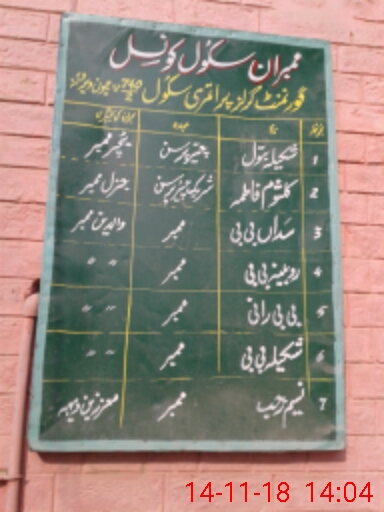 ممبران سکول کونسل
گورنمنٹ گرلز پرائمری سکول
نمبر نام عہدہ
1 شکیلہ بتول چیئرپرسن ٹیچر ممبر
2 کلثوم فاطمہ شریک چیئرپرسن جنرل ممبر
3 سداں بی بی ممبر والدین ممبر
4 روبینہ بی بی ممبر 〃 〃
5 بی بی رانی ممبر 〃 〃
6 شکیلہ بی بی ممبر 〃 〃
7 نسیم ممبر معززین دیہہ
14-11-18 14:04